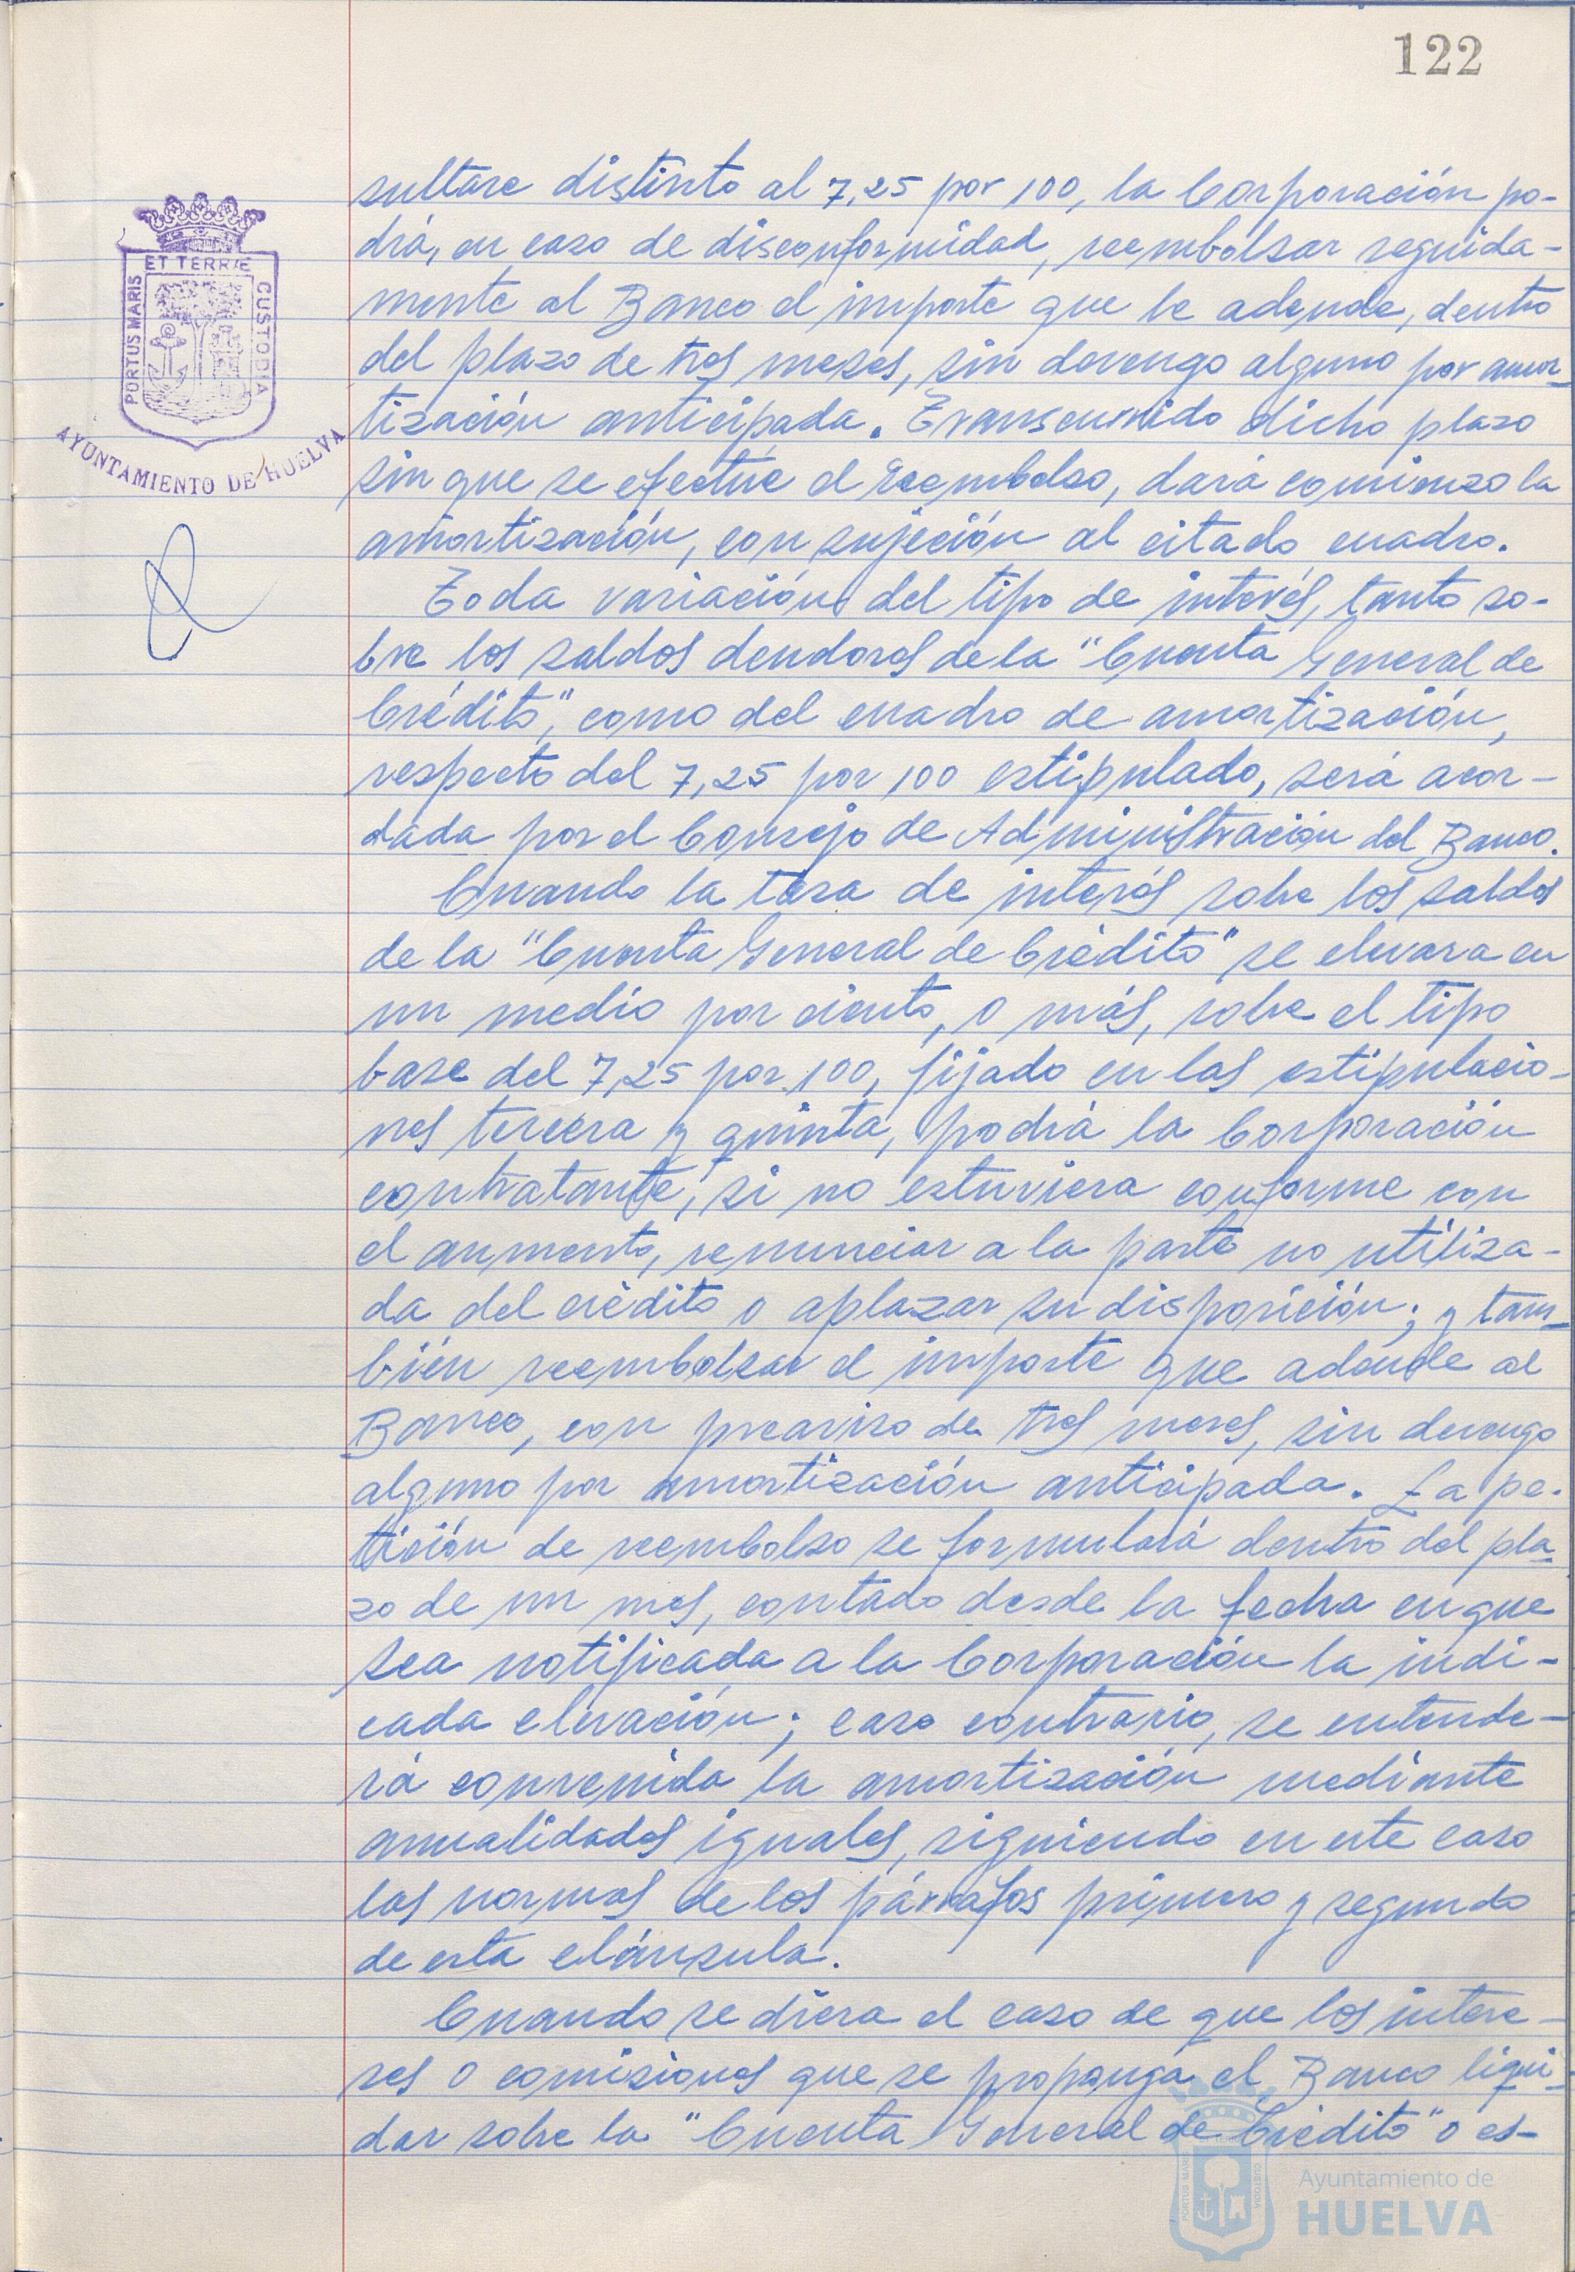 122
sultase distinto al 7,25 por 100, la Corporación po-
drá, en caso de disconformidad, reembolsar seguida-
mente al Banco el importe que le adeude, dentro
del plazo de tres meses, sin devengo alguno por amor-
tización anticipada. Transcurrido dicho plazo
sin que se efectúe el reembolso, dará comienzo la
amortización, con sujeción al citado cuadro.
Toda variación del tipo de interés, tanto so-
bre los saldos deudores de la "Cuenta General de
Crédito", como del cuadro de amortización,
respecto del 7,25 por 100 estipulado, será acor-
dada por el Consejo de Administración del Banco.
Cuando la tasa de interés sobre los saldos
de la "Cuenta General de Crédito" se elevara en
un medio por ciento, o más, sobre el tipo
base del 7,25 por 100, fijado en las estipulacio-
nes tercera y quinta, podrá la Corporación
contratante, si no estuviera conforme con
el aumento, renunciar a la parte no utiliza-
da del crédito o aplazar su disposición; y tam-
bién reembolsar el importe que adeude al
Banco, con preaviso de tres meses, sin devengo
alguno por amortización anticipada. La pe-
tición de reembolso se formulará dentro del pla-
zo de un mes, contado desde la fecha en que
sea notificada a la Corporación la indi-
cada elevación; caso contrario, se entende-
rá convenida la amortización mediante
anualidades iguales, siguiendo en este caso
las normas de los párrafos primero y segundo
de esta cláusula.
Cuando se diera el caso de que los intere-
ses o comisiones que se proponga el Banco liqui-
dar sobre la "Cuenta General de Crédito" o es-
PORTUS MARIS ET TERRÆ CUSTODIA
AYUNTAMIENTO DE HUELVA
Ayuntamiento de
HUELVA